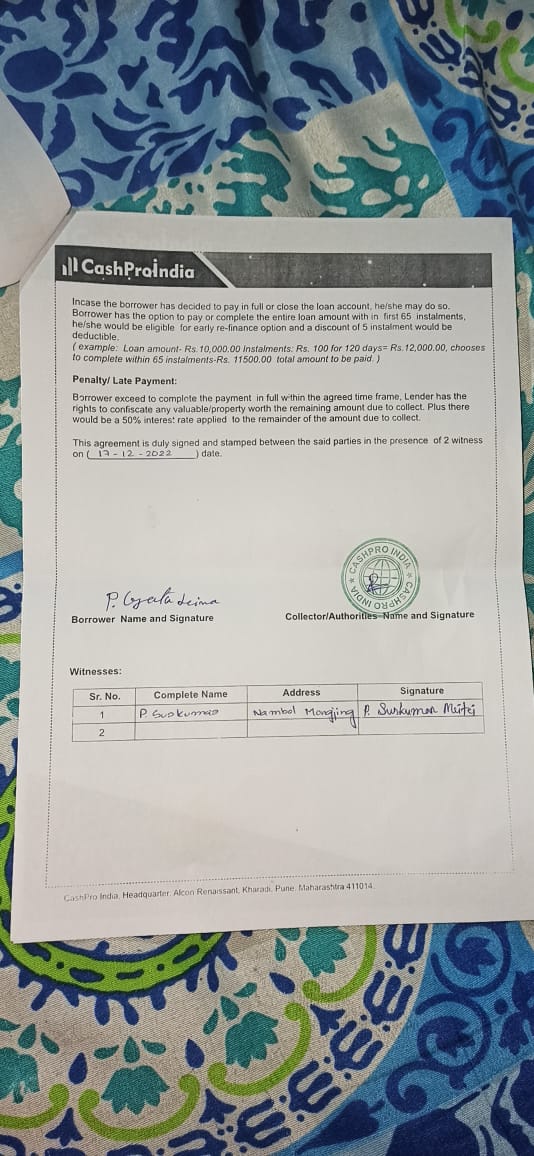 CashProIndia
Incase the borrower has decided to pay in full or close the loan account, he/she may do so.
Borrower has the option to pay or complete the entire loan amount with in first 65 instalments,
he/she would be eligible for early re-finance option and a discount of 5 instalment would be
deductible.
( example: Loan amount- Rs.10,000.00 Instalments: Rs. 100 for 120 days= Rs.12,000.00, chooses
to complete within 65 instalments-Rs. 11500.00 total amount to be paid. )
Penalty/ Late Payment:
Borrower exceed to complete the payment in full within the agreed time frame, Lender has the
rights to confiscate any valuable/property worth the remaining amount due to collect. Plus there
would be a 50% interest rate applied to the remainder of the amount due to collect.
This agreement is duly signed and stamped between the said parties in the presence of 2 witness
on ( 17-12-2022 ) date.
CASHPRO INDIA ★ CASHPRO INDIA ★
P. Leima
Borrower Name and Signature
Collector/Authorities Name and Signature
Witnesses:
Sr. No. Complete Name Address Signature
1 P. Nambol Mongjing P. Surkumar Meitei
2
CashPro India, Headquarter: Alcon Renaissant, Kharadi, Pune, Maharashtra 411014.